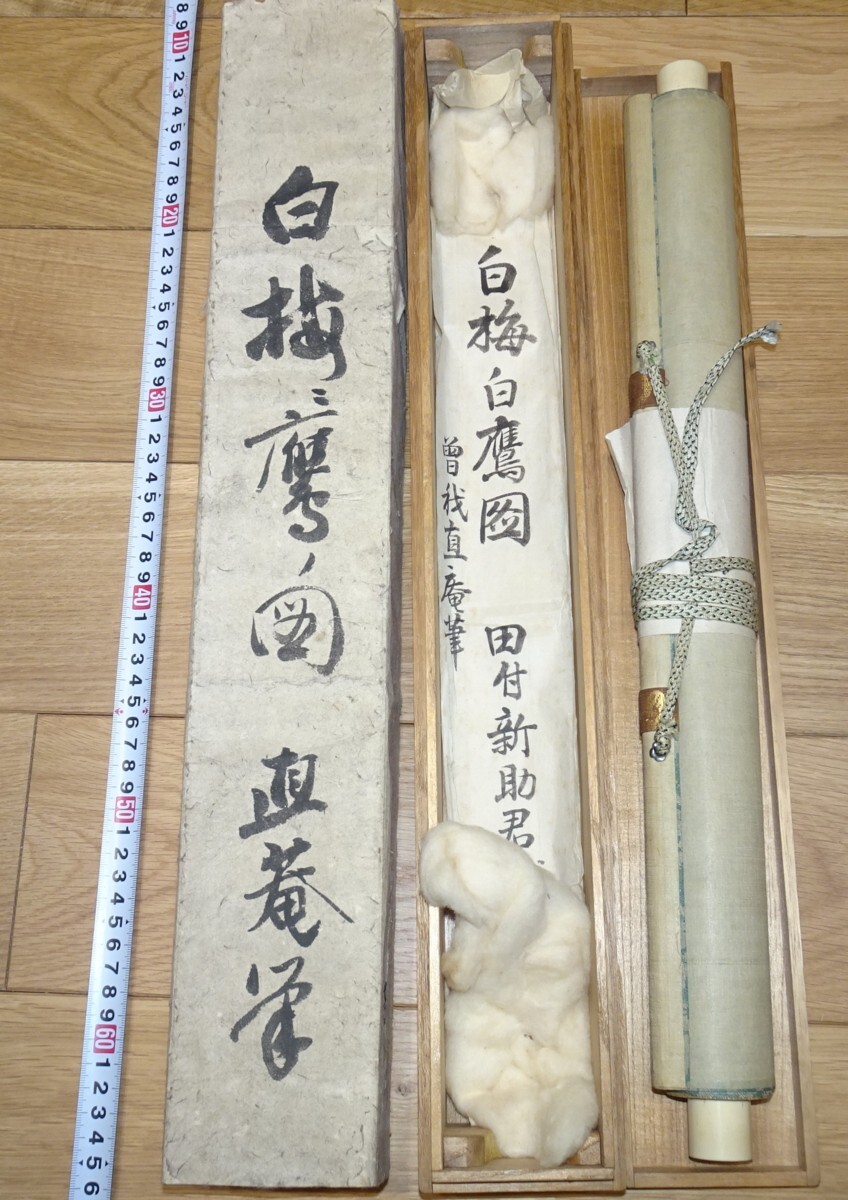 白梅ニ鷹ノ図　直菴筆
白梅白鷹図　田付新助君
曾我直庵筆
8 9 10 1 2 3 4 5 6 7 8 9 20 1 2 3 4 5 6 7 8 9 30 1 2 3 4 5 6 7 8 9 40 1 2 3 4 5 6 7 8 9 50 1 2 3 4 5 6 7 8 9 60 1 2 3 4 5 6